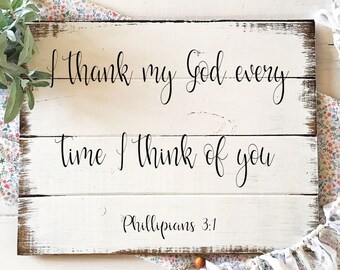 I thank my God every
time I think of you
Phillipians 3:1